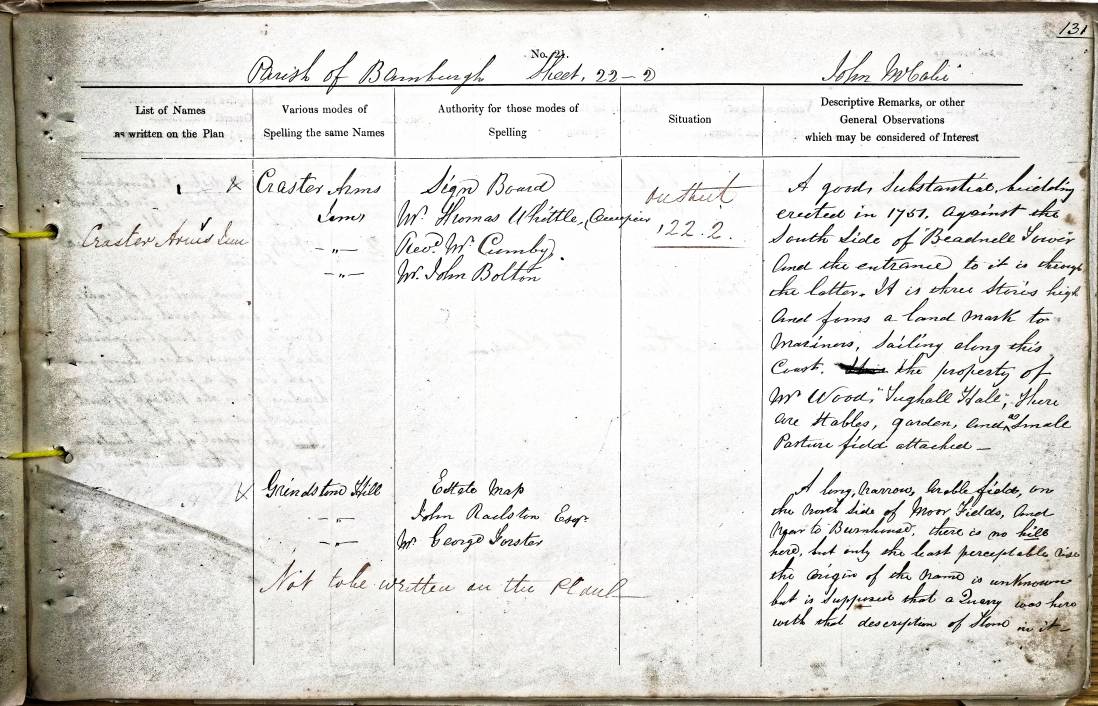 131
No. 21.
Parish of Bamburgh Sheet, 22-2 John McCabe
List of Names
as written on the Plan
Various modes of
Spelling the same Names
Authority for those modes of
Spelling
Situation
Descriptive Remarks, or other
General Observations
which may be considered of Interest
Craster Arms Inn
x Craster Arms
Inn
—"—
—"—
Sign Board
Mr. Thomas Whittle, Occupier
Revd. Mr. Cumby
Mr. John Bolton
on sheet
22.2.
A good, substantial, building
erected in 1751. Against the
South Side of Beadnell Tower
And the entrance to it is through
the latter. It is three Stories high
And forms a land Mark to
Mariners, Sailing along this
Coast. the property of
Mr Wood, "Tughall Hall", There
are Stables, garden, and a Small
Pasture field attached —
Grindstone Hill
—"—
—"—
Estate Map
John Railston Esqr.
Mr George Forster
Not to be written on the Plan
A long, narrow, Arable field, on
the north side of Moor Fields, And
Near to there is no hill
here, but only the least perceptable rise
the origin of the name is unknown
but is Supposed that a Quarry was here
with that description of Stone in it —